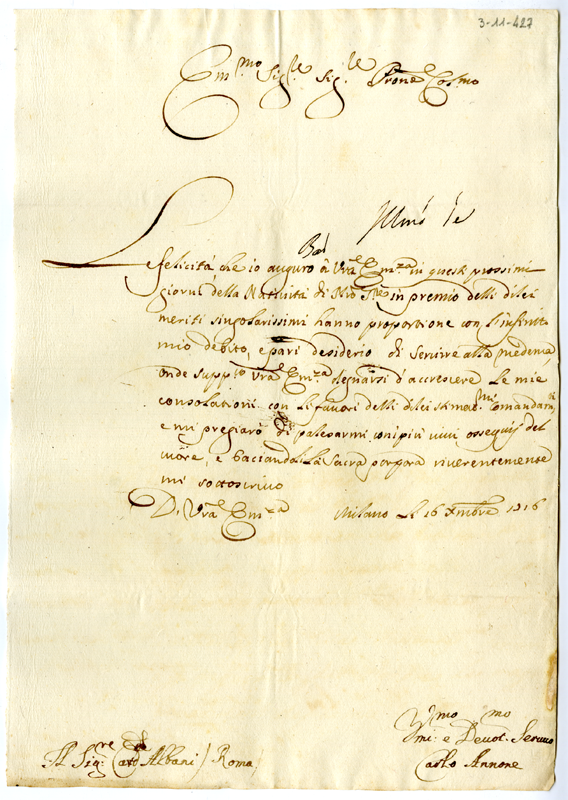 3-11-427
Em.mo Sig.re Sig.re Prone Col.mo
Le
felicità, che io auguro à Vra Em.za in questi prossimi
giorni della Natività di Nro Sre in premio delli di lei
meriti singolarissimi hanno proportione con l'infinito
mio debito, e pari desiderio di servire alla medema,
onde supp.to Vra Em.za degnarsi d'accrescere le mie
consolationi con li favori delli di lei stimat.mi comandam.ti
e mi pregiarò di palesarmi con i più vivi ossequij del
cuore, e baciandoli la sacra porpora riverentemente
mi sottoscrivo
Di Vra Em.za Milano li 16 Xmbre 1716
Al Sig.re Card Albani / Roma /
Vmi.mo e Devot.mo Servo
Carlo Annone